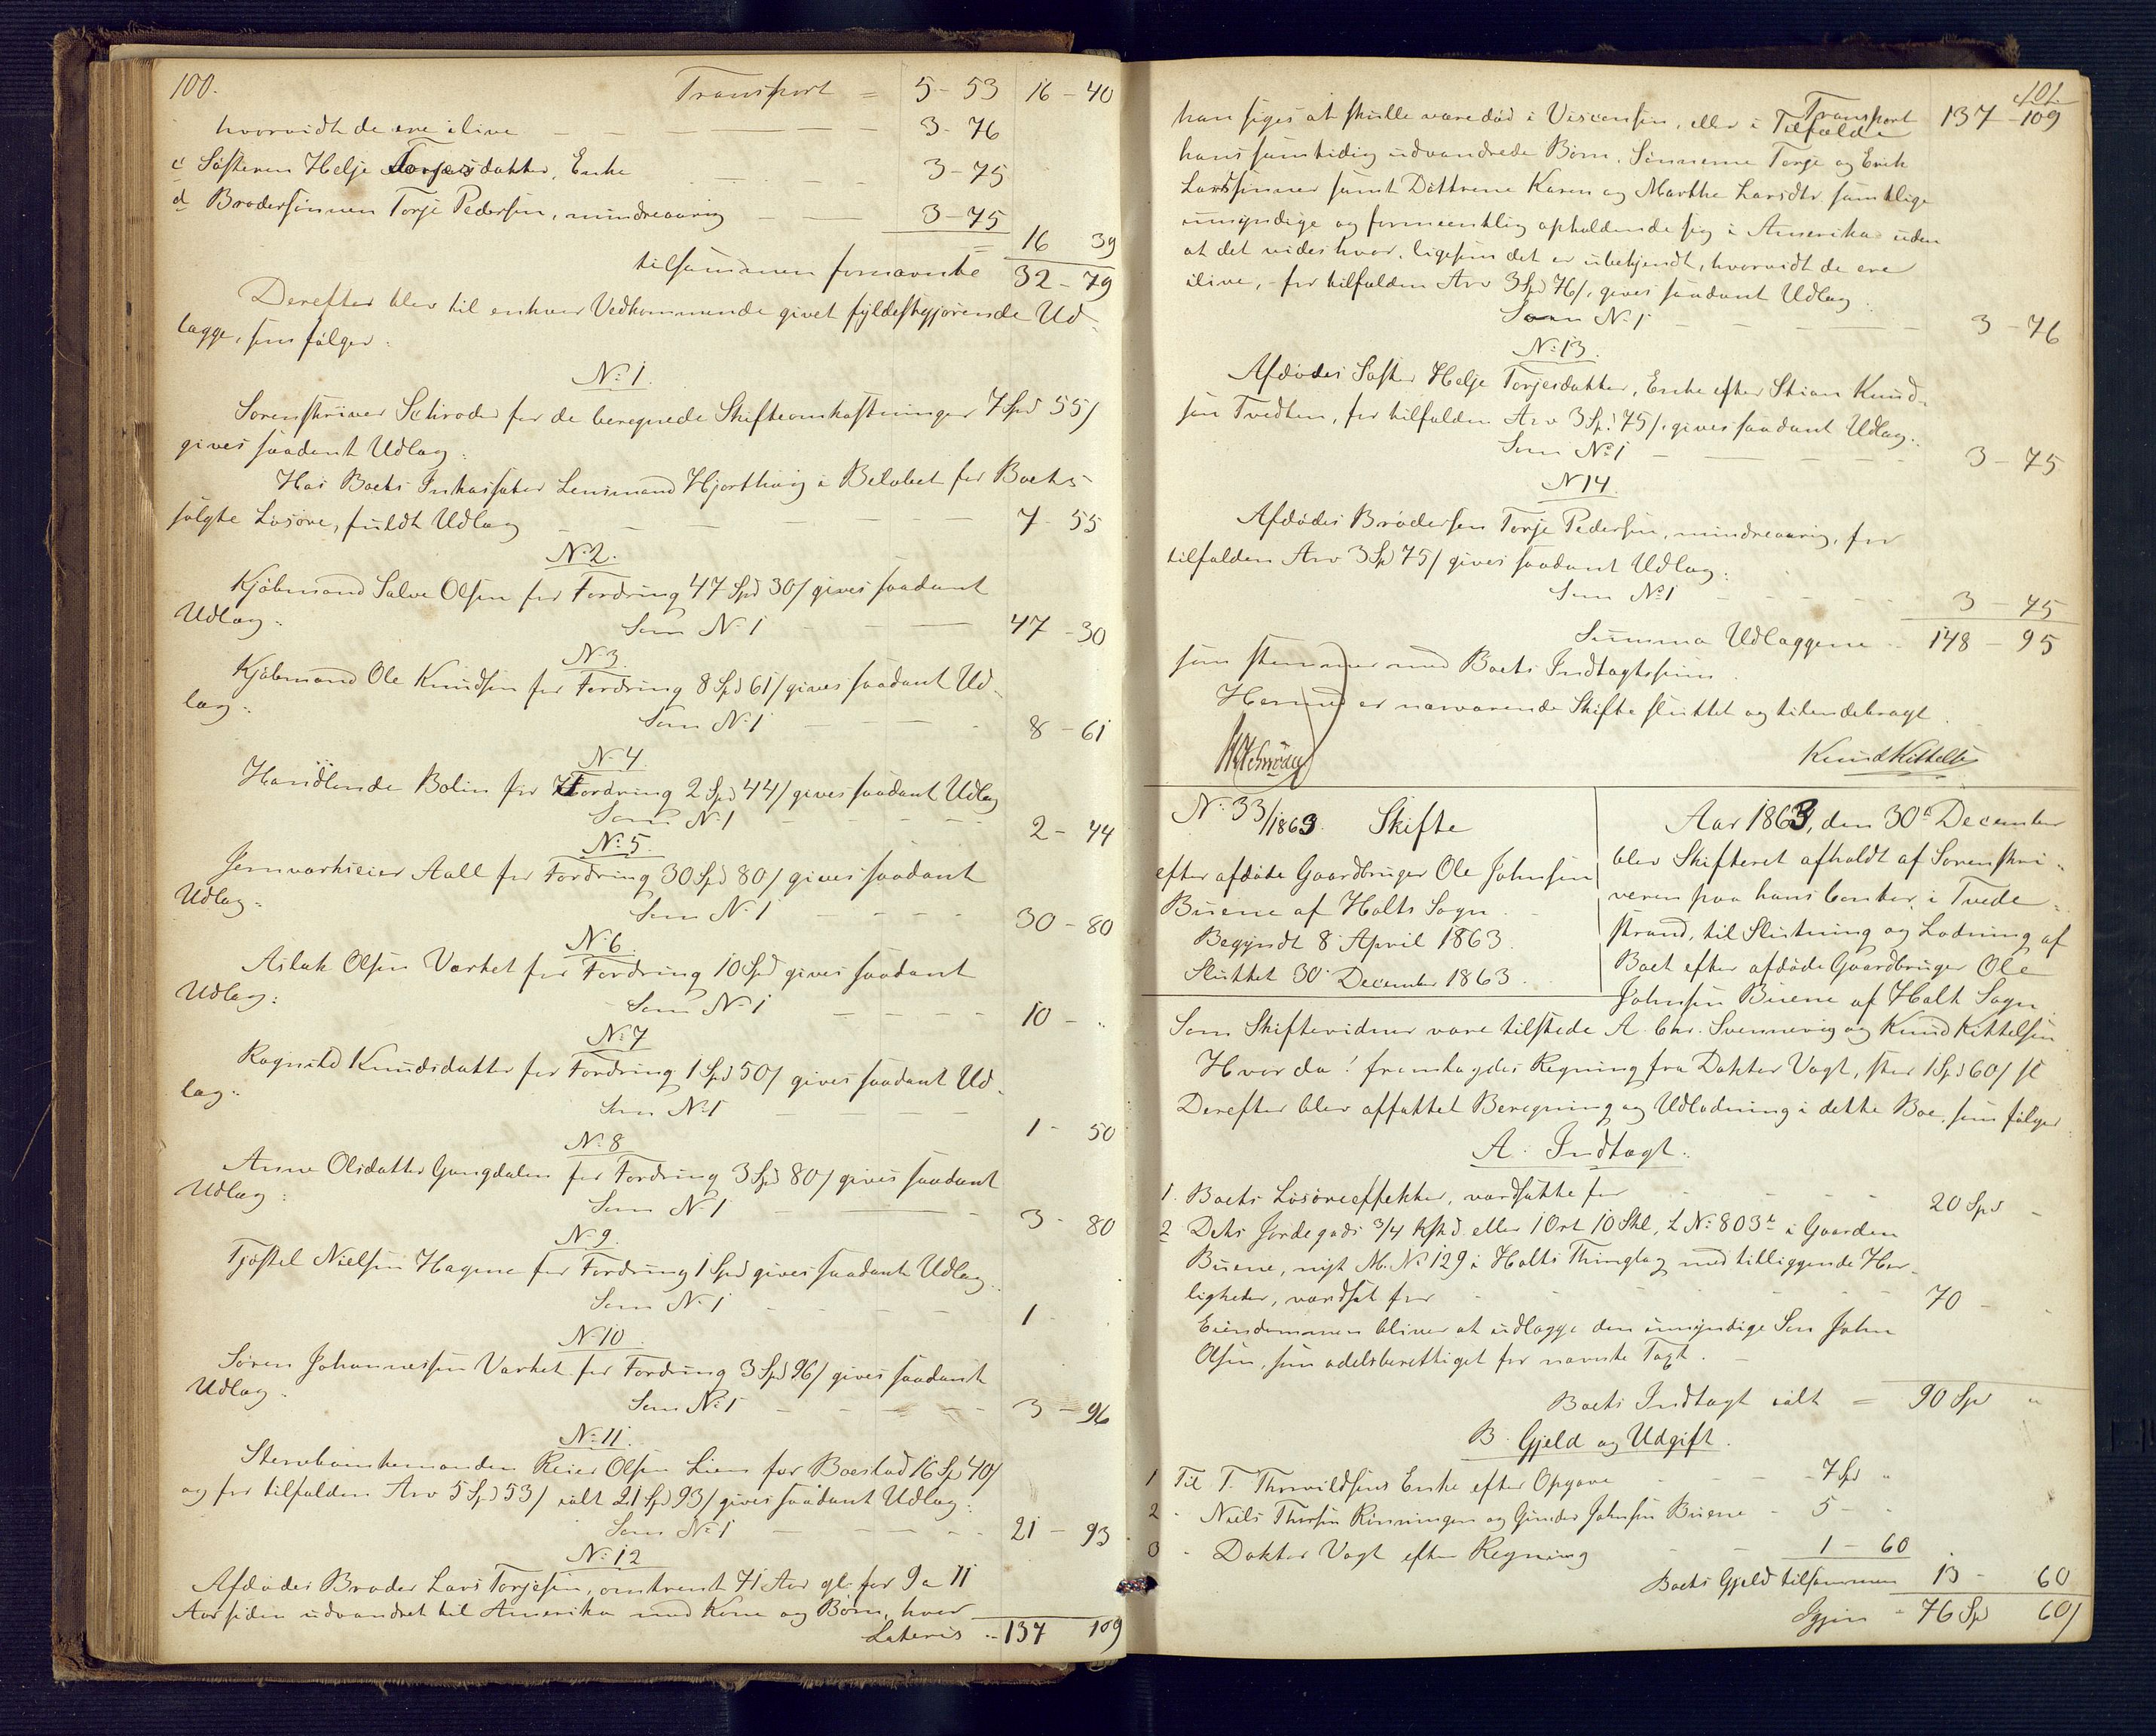 100.
Transport = 5 - 53 16 - 40
hvorvidt de ere ilive — 3 - 76
c Søsteren Helje Torjesdatter, Enke — 3 - 75
d Brodersønnen Torje Pedersen, mindreaarig — 3 - 75
= 16 39
tilsammen fornævnte 32 - 79
Derefter blev til enhver Vedkommende givet fyldestgjørende Ud-
lægge, som følger:
No 1.
Sorenskriver Schrøder for de beregnede Skifteomkostninger 7 Spd 55 /
gives saadant Udlæg:
Hos Boets Inkassator Lensmand Hjorthaug i Beløbet for Boets
solgte Løsøre, fuldt Udlæg — 7 - 55
No 2.
Kjøbmand Salve Olsen for Fordring 47 Spd 30 / gives saadant
Udlæg:
Som No 1 — 47 - 30
No 3.
Kjøbmand Ole Knudsen for Fordring 8 Spd 61 / gives saadant Ud-
læg:
Som No 1 — 8 - 61
No 4.
Handlende Bolin for Fordring 2 Spd 44 / gives saadant Udlæg
Som No 1 — 2 - 44
No 5.
Jernværkseier Aall for Fordring 30 Spd 80 / gives saadant
Udlæg:
Som No 1 — 30 - 80
No 6.
Aslak Olsen Værket for Fordring 10 Spd gives saadant
Udlæg:
Som No 1 — 10 - "
No 7
Ragnild Knudsdatter for Fordring 1 Spd 50 / gives saadant Ud-
læg:
Som No 1 — 1 - 50
No 8
Anne Olsdatter Gangdalen for Fordring 3 Spd 80 / gives saadant
Udlæg:
Som No 1 — 3 - 80
No 9.
Tjøstel Nielsen Hagene for Fordring 1 Spd gives saadant Udlæg.
Som No 1 — 1 -
No 10
Søren Johannessen Værket for Fordring 3 Spd 96 / gives saadant
Udlæg.
Som No 1 — 3 - 96
No 11.
Stervboinkemanden Reier Olsen Lien for Boeslod 16 Sp 40 /
og for tilfalden Arv 5 Spd 53 / ialt 21 Spd 93 / gives saadant Udlæg:
Som No 1 — 21 - 93
No 12
Afdødes Broder Lars Torjesen, omtrent 71 Aar gl. for 9 a 11
Aar siden udvandret til Amerika med Kone og Børn, hvor
Lateris - 137 109
101
Transport 137 - 109
han siges at skulle være død i Visconsin, eller i Tilfælde
hans samtidig udvandrede Børn, Sønnerne Torje og Erik
Larssønner samt Døttrene Karen og Marthe Larsdtr. samtlige
umyndige og formeentlig opholdende sig i Amerika uden
at det vides hvor, ligesom det er ubekjendt, hvorvidt de ere
ilive, for tilfalden Arv 3 Spd 76 /, gives saadant Udlæg.
Som No 1 — 3 - 76
No 13.
Afdødes Søster Helje Torjesdatter, Enke efter Stian Knud-
sen Tvedten, for tilfalden Arv 3 Sp. 75 /. gives saadant Udlæg.
Som No 1 — 3 - 75
N 14.
Afdødes Brodersøn Torje Pedersen, mindreaarig, for
tilfalden Arv 3 Sp 75 / gives saadant Udlæg:
Som No 1 — 3 - 75
Summa Udlæggene - 148 - 95
som stemmer med Boets Indtægtssum.
Hermed er nærværende Skifte sluttet og tilendebragt.
Schrøder
Knud Kittelsen
No 33/1863. Skifte
efter afdøde Gaardbruger Ole Johnsen
Buene af Holts Sogn.
Begyndt 8 April 1863.
Sluttet 30 December 1863.
Aar 1863, den 30te December
blev Skifteret afholdt af Sorenskri-
veren paa hans Contor i Tvede-
strand, til Slutning og Lodning af
Boet efter afdøde Gaardbruger Ole
Johnsen Buene af Holt Sogn.
Som Skiftevidner vare tilstede A. Chr. Svennevig og Knud Kittelsen
Hvor da! fremlagdes Regning fra Doktor Vogt, stor 1 Spd 60 / sl
Derefter blev affattet Beregning og Udlodning i dette Boe, som følger:
A. Indtægt.
1. Boets Løsøreeffekter, værdsatte for — 20 Spd -
2. Dets Jordegods 3/4 Hpd. eller 1 Ort 10 Skl, L No 803 b i Gaarden
Buene, nyt M. No 129 i Holts Thinglag med tilliggende Her-
ligheder, værdsat for — 70 -
Eiendommen bliver at udlægge den umyndige Søn John
Olsen, som odelsberettiget for nævnte Taxt.
Boets Indtægt ialt = 90 Spd "
B. Gjeld og Udgift.
1 Til T. Thorvildsens Enke efter Opgave — 7 Spd "
2 - Niels Thorsen Rønningen og Gunder Johnsen Buene - 5 -
3 - Doktor Vogt efter Regning — 1 - 60
Boets Gjeld tilsammen 13 - 60
Igjen - 76 Spd 60 /